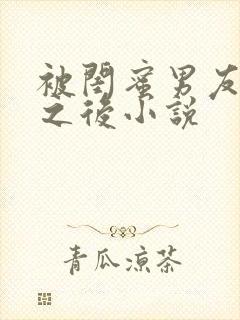 被闺蜜男友
之後小説
青瓜凉茶